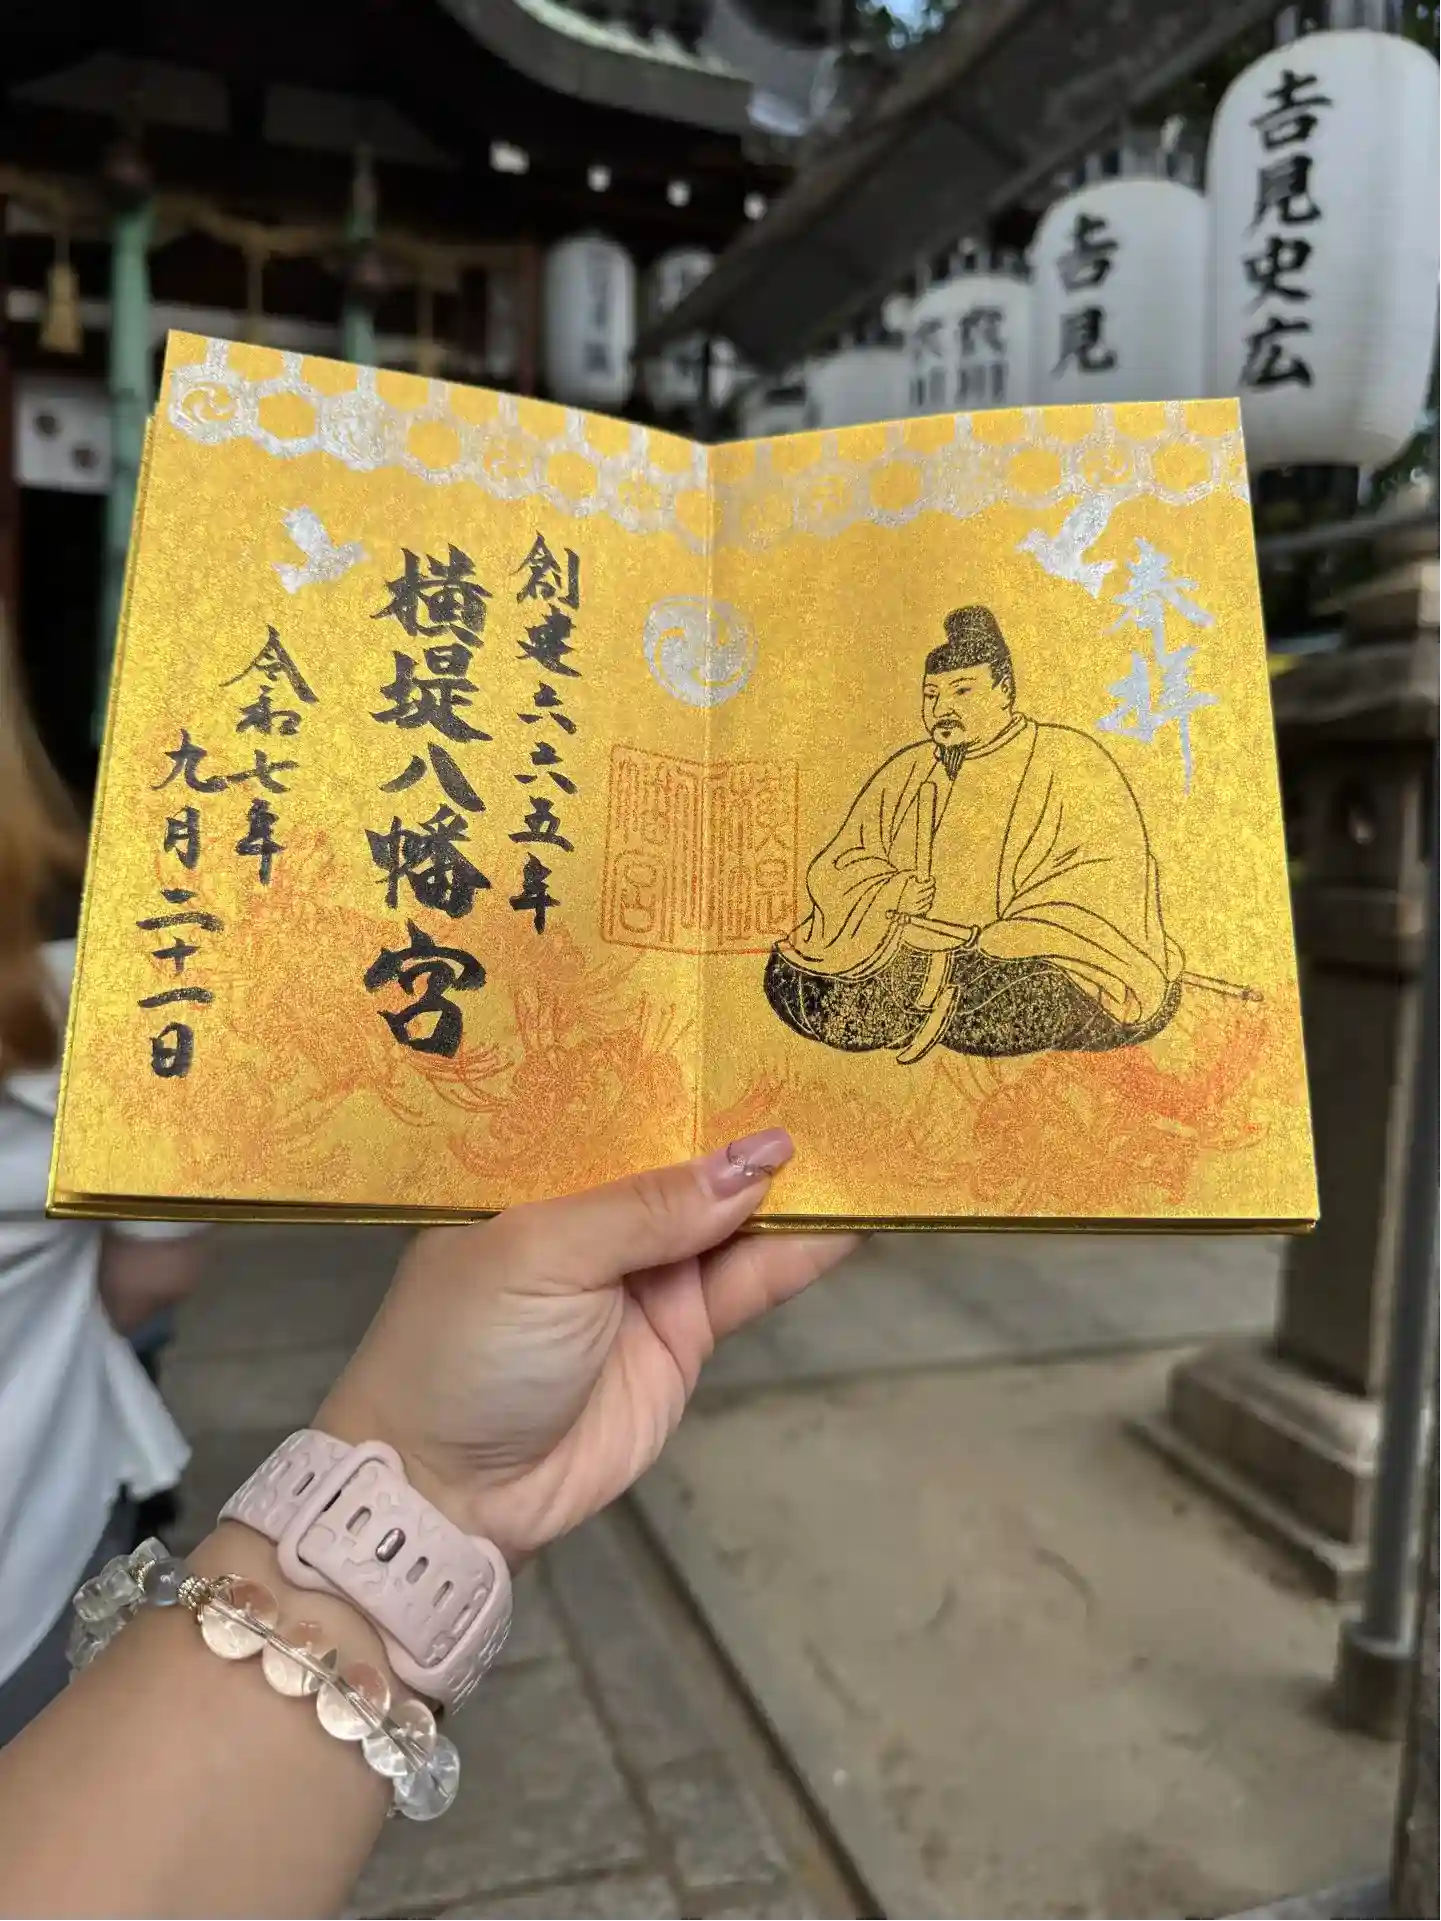 奉拝
創建六六五年
横堤八幡宮
令和七年
九月二十一日
横堤
八幡宮
吉見史広
吉見